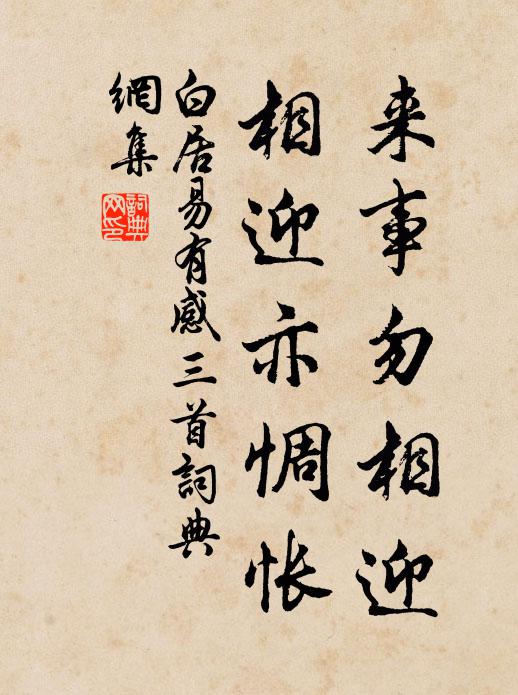 来事勿相迎
相迎亦惆怅
白居易有感三首詞典
網集
詞典
网印